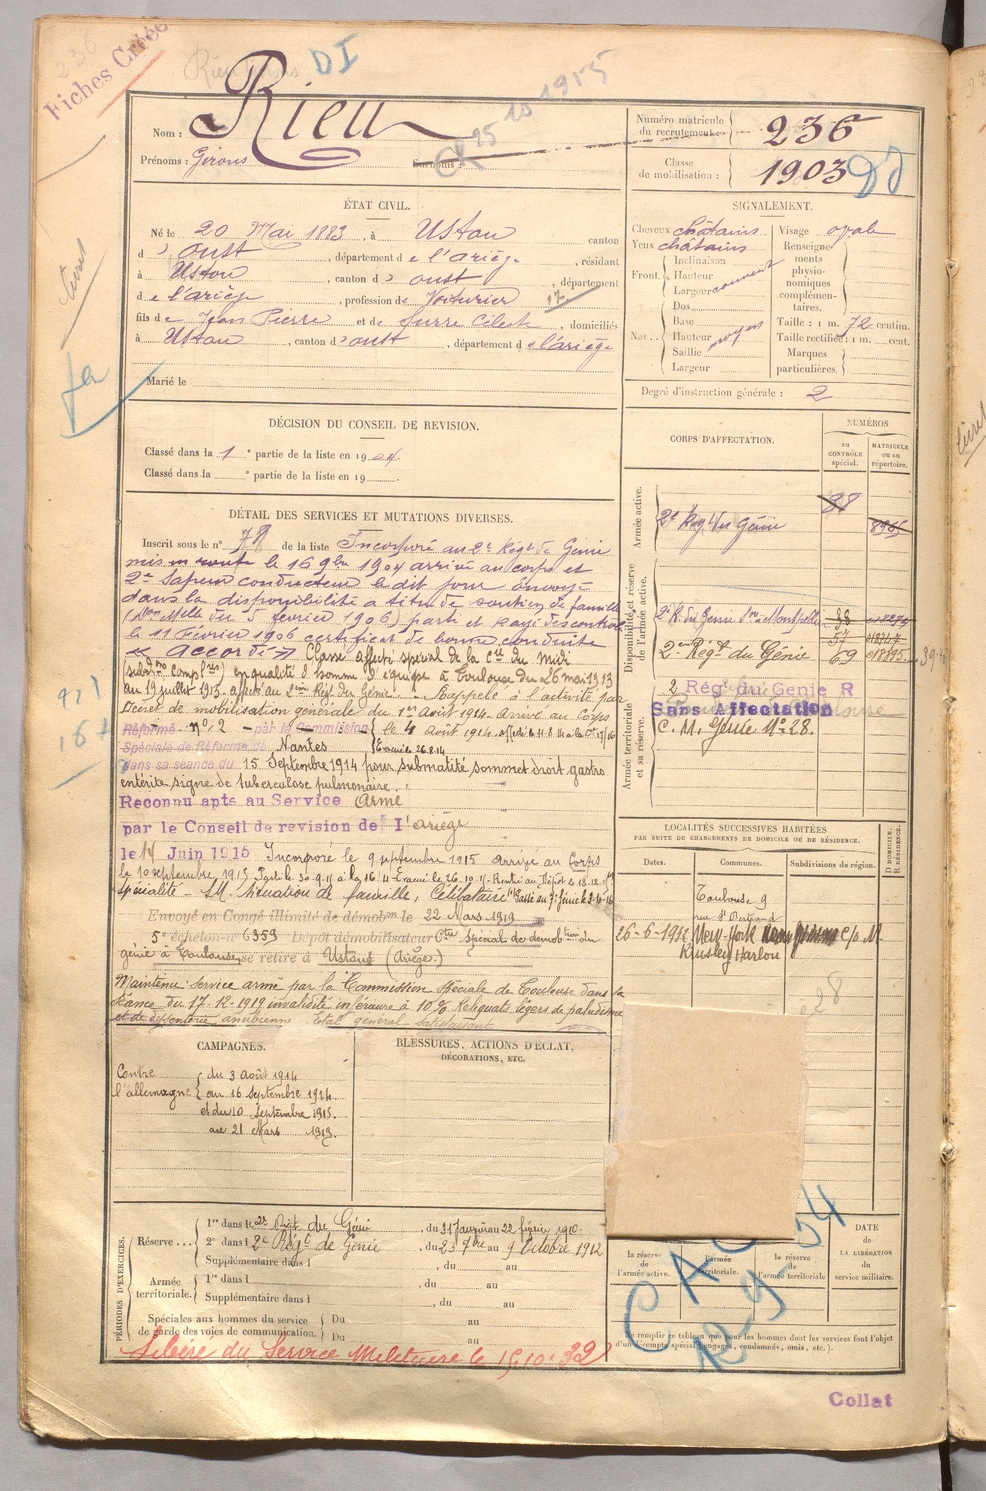 Fiches Créées
DI
25 10 1915
Nom : Rieu
Prénoms : Girons
Surnoms :
Numéro matricule du recrutement : 236
Classe de mobilisation : 1903
ÉTAT CIVIL.
Né le 20 Mai 1883, à Ustou canton
d' Oust, département de l'ariège, résidant
à Ustou, canton d' oust, département
de l'ariège, profession de Voiturier 17
fils de Jean Pierre et de Surre Céleste, domiciliés
à Ustou, canton d' oust, département de l'ariège
Marié le
SIGNALEMENT.
Cheveux châtains
Yeux châtains
Front. Inclinaison
Hauteur
Largeur
Nez. Dos
Base
Hauteur moyen
Saillie
Largeur
Visage oval
Renseignements physionomiques complémentaires.
Taille : 1 m. 72 centim.
Taille rectifiée : 1 m. cent.
Marques particulières.
Degré d'instruction générale : 2
DÉCISION DU CONSEIL DE REVISION.
Classé dans la 1e partie de la liste en 1904.
Classé dans la e partie de la liste en 19
CORPS D'AFFECTATION.
NUMÉROS
au CONTRÔLE spécial.
MATRICULE ou au répertoire.
Armée active.
2e Rég. du Génie 88 8965
Disponibilité et réserve de l'armée active.
2e R. du Génie Montpellier 38
57
2me Régt du Génie 69
Armée territoriale et sa réserve.
2 Rég. du Genie R
Sans Affectation
C. M. Génie No 28.
DÉTAIL DES SERVICES ET MUTATIONS DIVERSES.
Inscrit sous le no 78 de la liste Incorporé au 2e Régt de Génie
mis en route le 16 9bre 1904 arrivé au corps et
2e Sapeur conducteur le dit jour envoyé
dans la disponibilité à titre de soutien de famille
(Don Mlle du 5 février 1906) parti et rayé des contrôles
le 11 Février 1906 certificat de bonne conduite
« accordé » Classé affecté spécial de la Cie du Midi
(subdon compl.res) en qualité d'homme d'équipe à Toulouse du 26 mai 1913
au 19 juillet 1913. affecté au 2me Régt du Génie. Rappelé à l'activité par
décret de mobilisation générale du 1er Août 1914. Arrivé au Corps
le 4 Août 1914.
Évacué le 26.8.14
Réformé no 2 par la Commission
Spéciale de Réforme de Nantes
dans sa séance du 15 Septembre 1914 pour submatité sommet droit gastro
entérite signe de tuberculose pulmonaire.
Reconnu apte au Service Armé
par le Conseil de revision de l'ariège
le 14 Juin 1915 Incorporé le 9 septembre 1915 arrivé au Corps
le 10 septembre 1915
Spécialité - S.M. Situation de famille, Célibataire
Envoyé en Congé illimité de démobon le 22 Mars 1919
5e échelon no 6359 Dépôt démobilisateur Cie Spéciale de démobtion du
génie à Toulouse, se retire à Ustou (Ariège.)
Maintenu service armé par la Commission Spéciale de Toulouse dans sa
séance du 17-12-1919 invalidité inférieure à 10% Reliquats légers de paludisme
et de dysenterie amibienne Etat général satisfaisant
LOCALITÉS SUCCESSIVES HABITÉES
PAR SUITE DE CHANGEMENTS DE DOMICILE OU DE RÉSIDENCE.
Dates.
Communes.
Subdivisions de région.
D DOMICILE. R RÉSIDENCE.
Toulouse 9
rue St Bertrand
New-York
28
CAMPAGNES.
Contre l'allemagne
du 3 Août 1914
au 16 Septembre 1914.
et du 10 Septembre 1915.
au 21 Mars 1919.
BLESSURES, ACTIONS D'ÉCLAT,
DÉCORATIONS, ETC.
PÉRIODES D'EXERCICES.
Réserve
1re dans le 2e Régt du Génie, du 31 Janvier au 22 février 1910.
2e dans le 2e Régt de Génie, du 23 7bre au 9 Octobre 1912
Supplémentaire dans l , du au
Armée territoriale.
1re dans l , du au
Supplémentaire dans l , du au
Spéciales aux hommes du service de garde des voies de communication.
Du au
Du au
Libéré du Service Militaire le 15.10.32
la réserve de l'armée active.
l'armée territoriale.
la réserve de l'armée territoriale
DATE DE LA LIBÉRATION du service militaire.
remplir ce tableau que pour les hommes dont les services font l'objet
d'un décompte spécial (engagés, condamnés, omis, etc.).
Collat